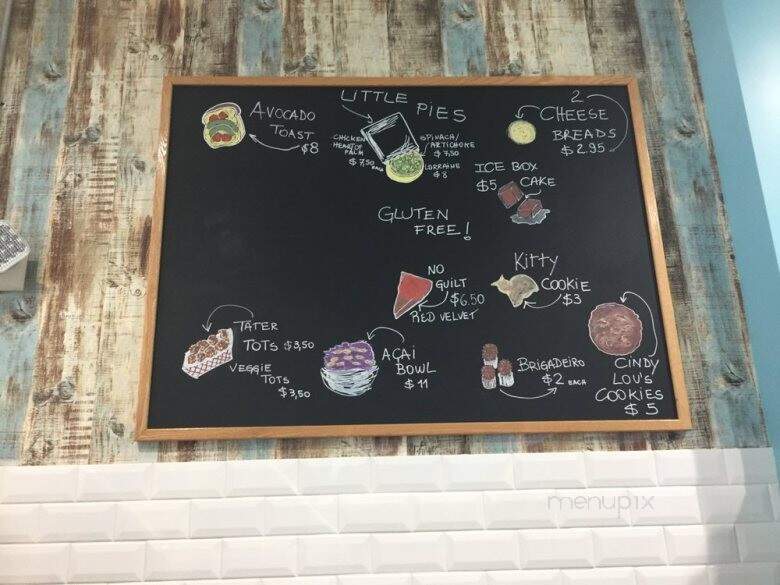 AVOCADO
TOAST
$8
LITTLE PIES
CHICKEN
HEART OF
PALM
$7,50
EACH
SPINACH/
ARTICHOKE
$7,50
LORRAINE
$8
2
CHEESE
BREADS
$2.95
ICE BOX
CAKE
$5
GLUTEN
FREE!
NO
GUILT
$6.50
RED VELVET
Kitty
COOKIE
$3
TATER
TOTS $3,50
VEGGIE
TOTS
$3,50
AÇAI
BOWL
$11
BRIGADEIRO
$2 EACH
CINDY
LOU'S
COOKIES
$5
menupix